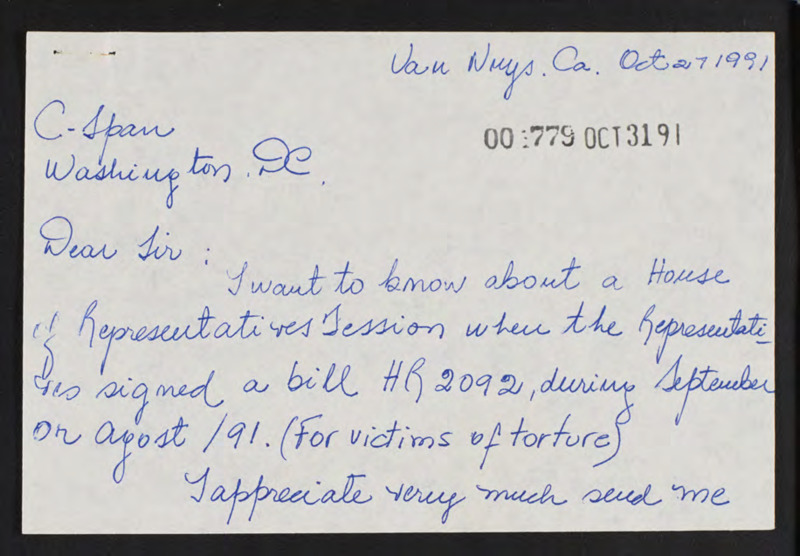 Van Nuys. Ca. Oct 27 1991
C-Span
Washington. DC.
00:779 OCT 31 91
Dear Sir :
I want to know about a House
of Representatives Session when the Representati-
ves signed a bill HR 2092, during September
or Agost /91. (For victims of torture)
I appreciate very much send me